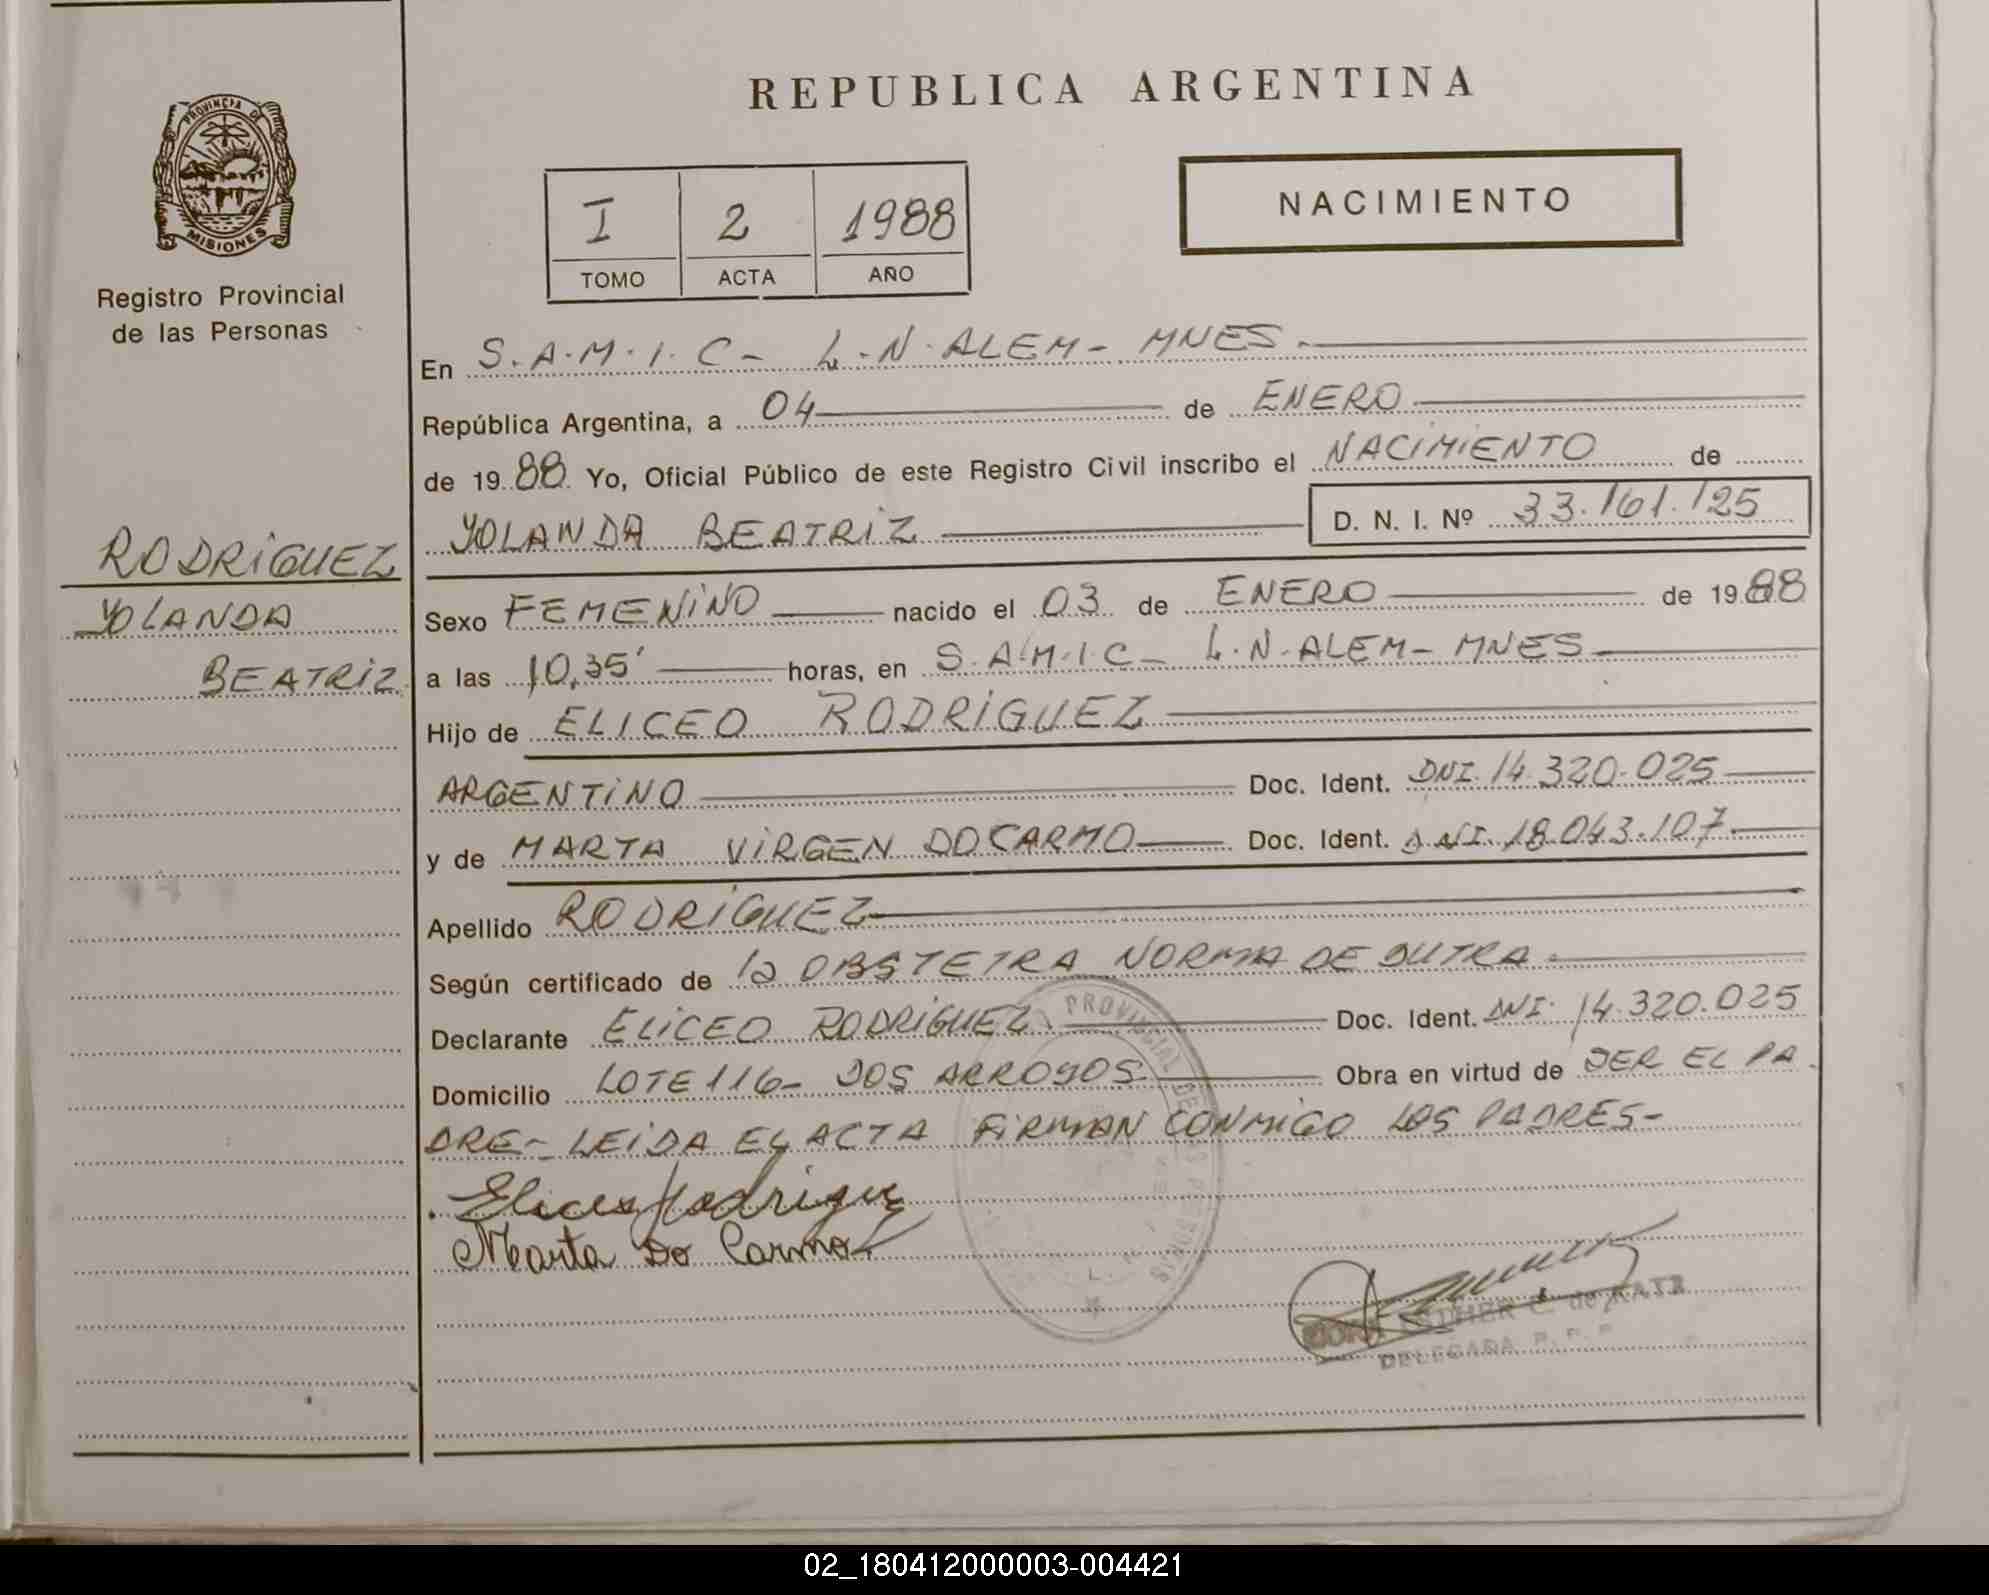 REPUBLICA ARGENTINA
PROVINCIA DE
MISIONES
Registro Provincial
de las Personas
I 2 1988
TOMO ACTA AÑO
NACIMIENTO
En S.A.M.I.C- L.N.ALEM- MNES.
República Argentina, a 04 de ENERO
de 1988 Yo, Oficial Público de este Registro Civil inscribo el NACIMIENTO de
YOLANDA BEATRIZ D. N. I. Nº 33.161.125
RODRIGUEZ
YOLANDA
BEATRIZ
Sexo FEMENINO nacido el 03 de ENERO de 1988
a las 10,35' horas, en S.A.M.I.C- L.N.ALEM- MNES
Hijo de ELICEO RODRIGUEZ
ARGENTINO Doc. Ident. DNI.14.320.025
y de MARTA VIRGEN DOCARMO Doc. Ident. DNI.18.043.107
Apellido RODRIGUEZ
Según certificado de la OBSTETRA NORMA DE DUTRA.
Declarante ELICEO RODRIGUEZ Doc. Ident. DNI. 14.320.025
Domicilio LOTE 116- DOS ARROYOS Obra en virtud de SER EL PA
DRE- LEIDA EL ACTA FIRMAN CONMIGO LOS PADRES-
Eliceo Rodriguez
Marta Do Carmo
PROVINCIAL DE LAS PERSONAS
ESTHER C. de KATZ
DELEGADA R. P. P.
02_180412000003-004421